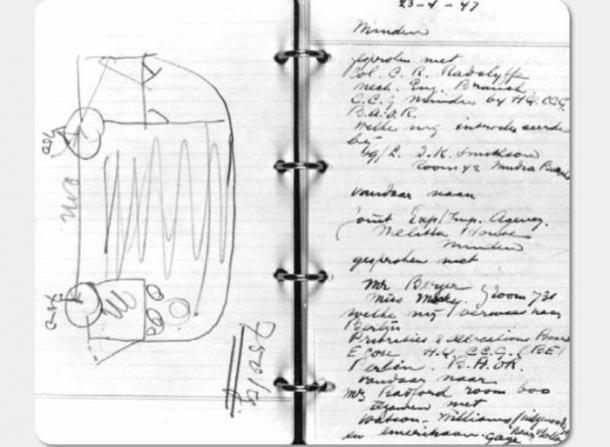 750
750
750 kg.
23-4-47
Minden
gesproken met
Col. C. R. Radclyffe
Mech. Eng. Branch
C.C.G Minden by HQ. CCG
B.A.O.R.
welke mij introduceerde
by
J.K.
Room 42
vandaar naar
Joint Exp/Imp. Agency.
Melitta House
Minden
gesproken met
Mr Berger
Miss room 731
welke mij naar
Berlijn
Priorities & allocations Board
Econ H.Q. C.C.G. (BE)
Berlin. B.A.O.R.
vandaar naar
Mr Radford room 600
tezamen met
Watson. Williams
en Amerikaan. Gaye